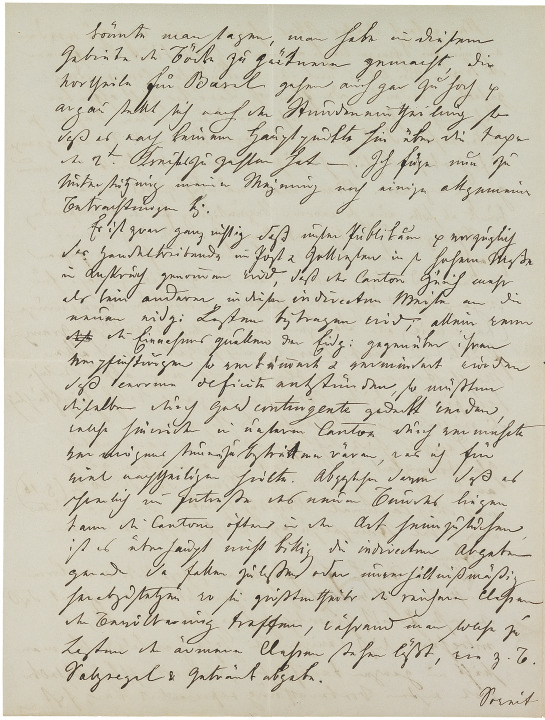 könnte man sagen, man habe in diesem
Gebiete die Böcke zu Gärtnern gemacht, die
Vortheile für Basel gehen auch gar zu hoch &
Argau stellt sich nach der Stundeneintheilung so
daß es nach keinem Hauptpunkte hin über die Taxe
des 2t. Kreises zu zahlen hat —. Ich füge nun zu
Unterstützung meiner Meinung noch einige allgemeine
Betrachtungen bei.
Es ist zwar ganz richtig daß unser Publikum & vorzüglich
der Handeltreibende im Post & Zollwesen in hohem Maße
in Anspruch genommen wird, daß der Canton Zürich mehr
als kein anderer in dieser indirecten Weise an die
neuen eidg: Lasten beitragen wird, allein wenn
die Einnahmsquellen der Eidg: gegenüber ihren
Verpflichtungen so verkümmert & vermindert würden
daß enorme Deficite entstünden, so müßten
dieselben durch Geldcontingente gedeckt werden,
welche hinwieder in unserem Canton durch vermehrte
Vermögenssteuern beizutreiben wären, was ich für
viel nachtheiliger hielte. Abgesehen davon daß es
schwerlich im Interesse des neuen Bundes liegen
kann die Cantone öfters in der Art heimzusuchen,
ist es überhaupt nicht billig die indirecten Abgaben
gerade da fallen zu lassen oder unverhältnißmäßig
herabzusetzen wo sie größtentheils die reichern Classen
der Bevölkerung treffen, während man solche zu
Lasten der ärmeren Classen stehen läßt, wie z. B.
Salzregal & Getränkabgabe.
Somit